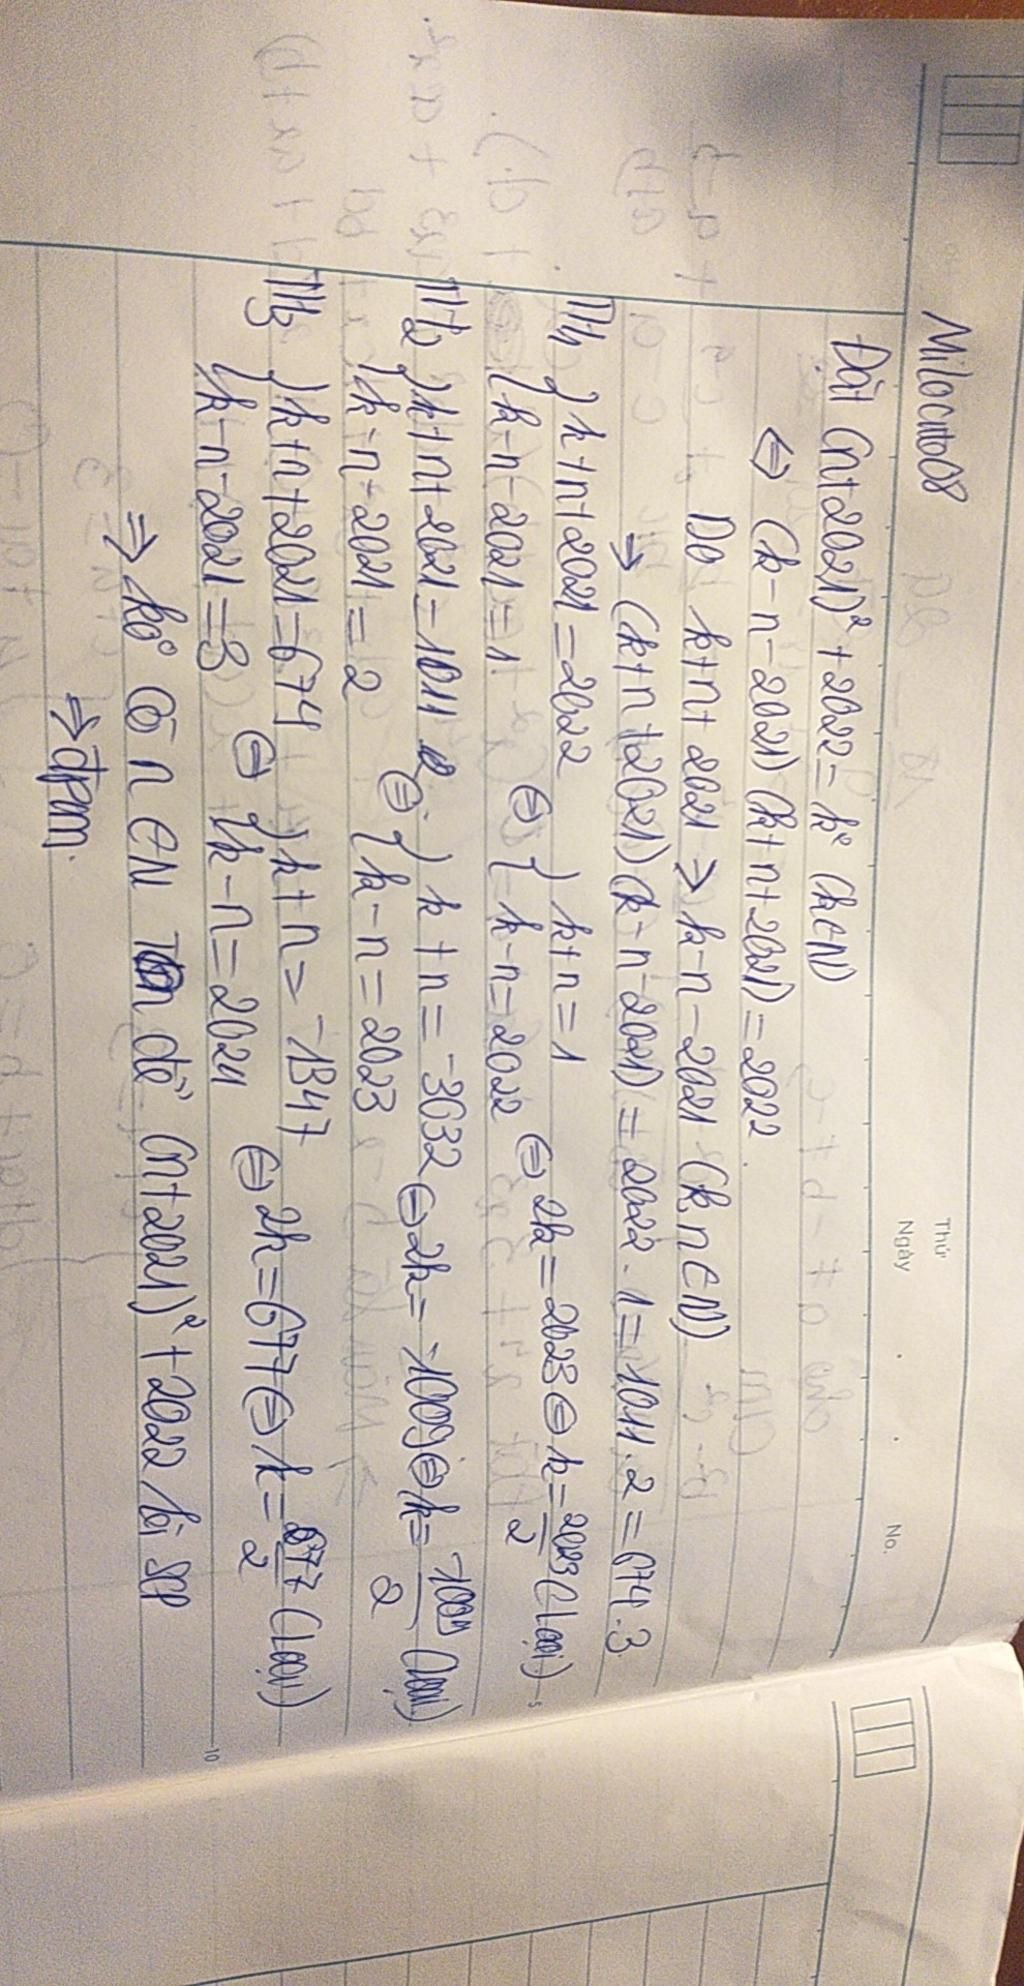 Milocuto08
Thứ
Ngày
No.
Đặt (n+2021)² + 2022 = k² (k∈N)
⇔ (k-n-2021)(k+n+2021) = 2022
Do k+n+2021 ≥ k-n-2021 (k,n∈N)
⇒ (k+n+2021)(k-n-2021) = 2022.1 = 1011.2 = 674.3
TH1 { k+n+2021 = 2022 ⇔ { k+n = 1
{ k-n-2021 = 1 { k-n = 2022 ⇔ 2k = 2023 ⇔ k = 2023/2 (loại)
TH2 { k+n+2021 = 1011 ⇔ { k+n = -3032 ⇔ 2k = -1009 ⇔ k = (loại)
{ k-n-2021 = 2 { k-n = 2023
TH3 { k+n+2021 = 674 ⇔ { k+n = -1347
{ k-n-2021 = 3 { k-n = 2024 ⇔ 2k = 677 ⇔ k = 677/2 (loại)
⇒ ko có n ∈N Tồn để (n+2021)² + 2022 là SCP
⇒ đpcm.
5
10